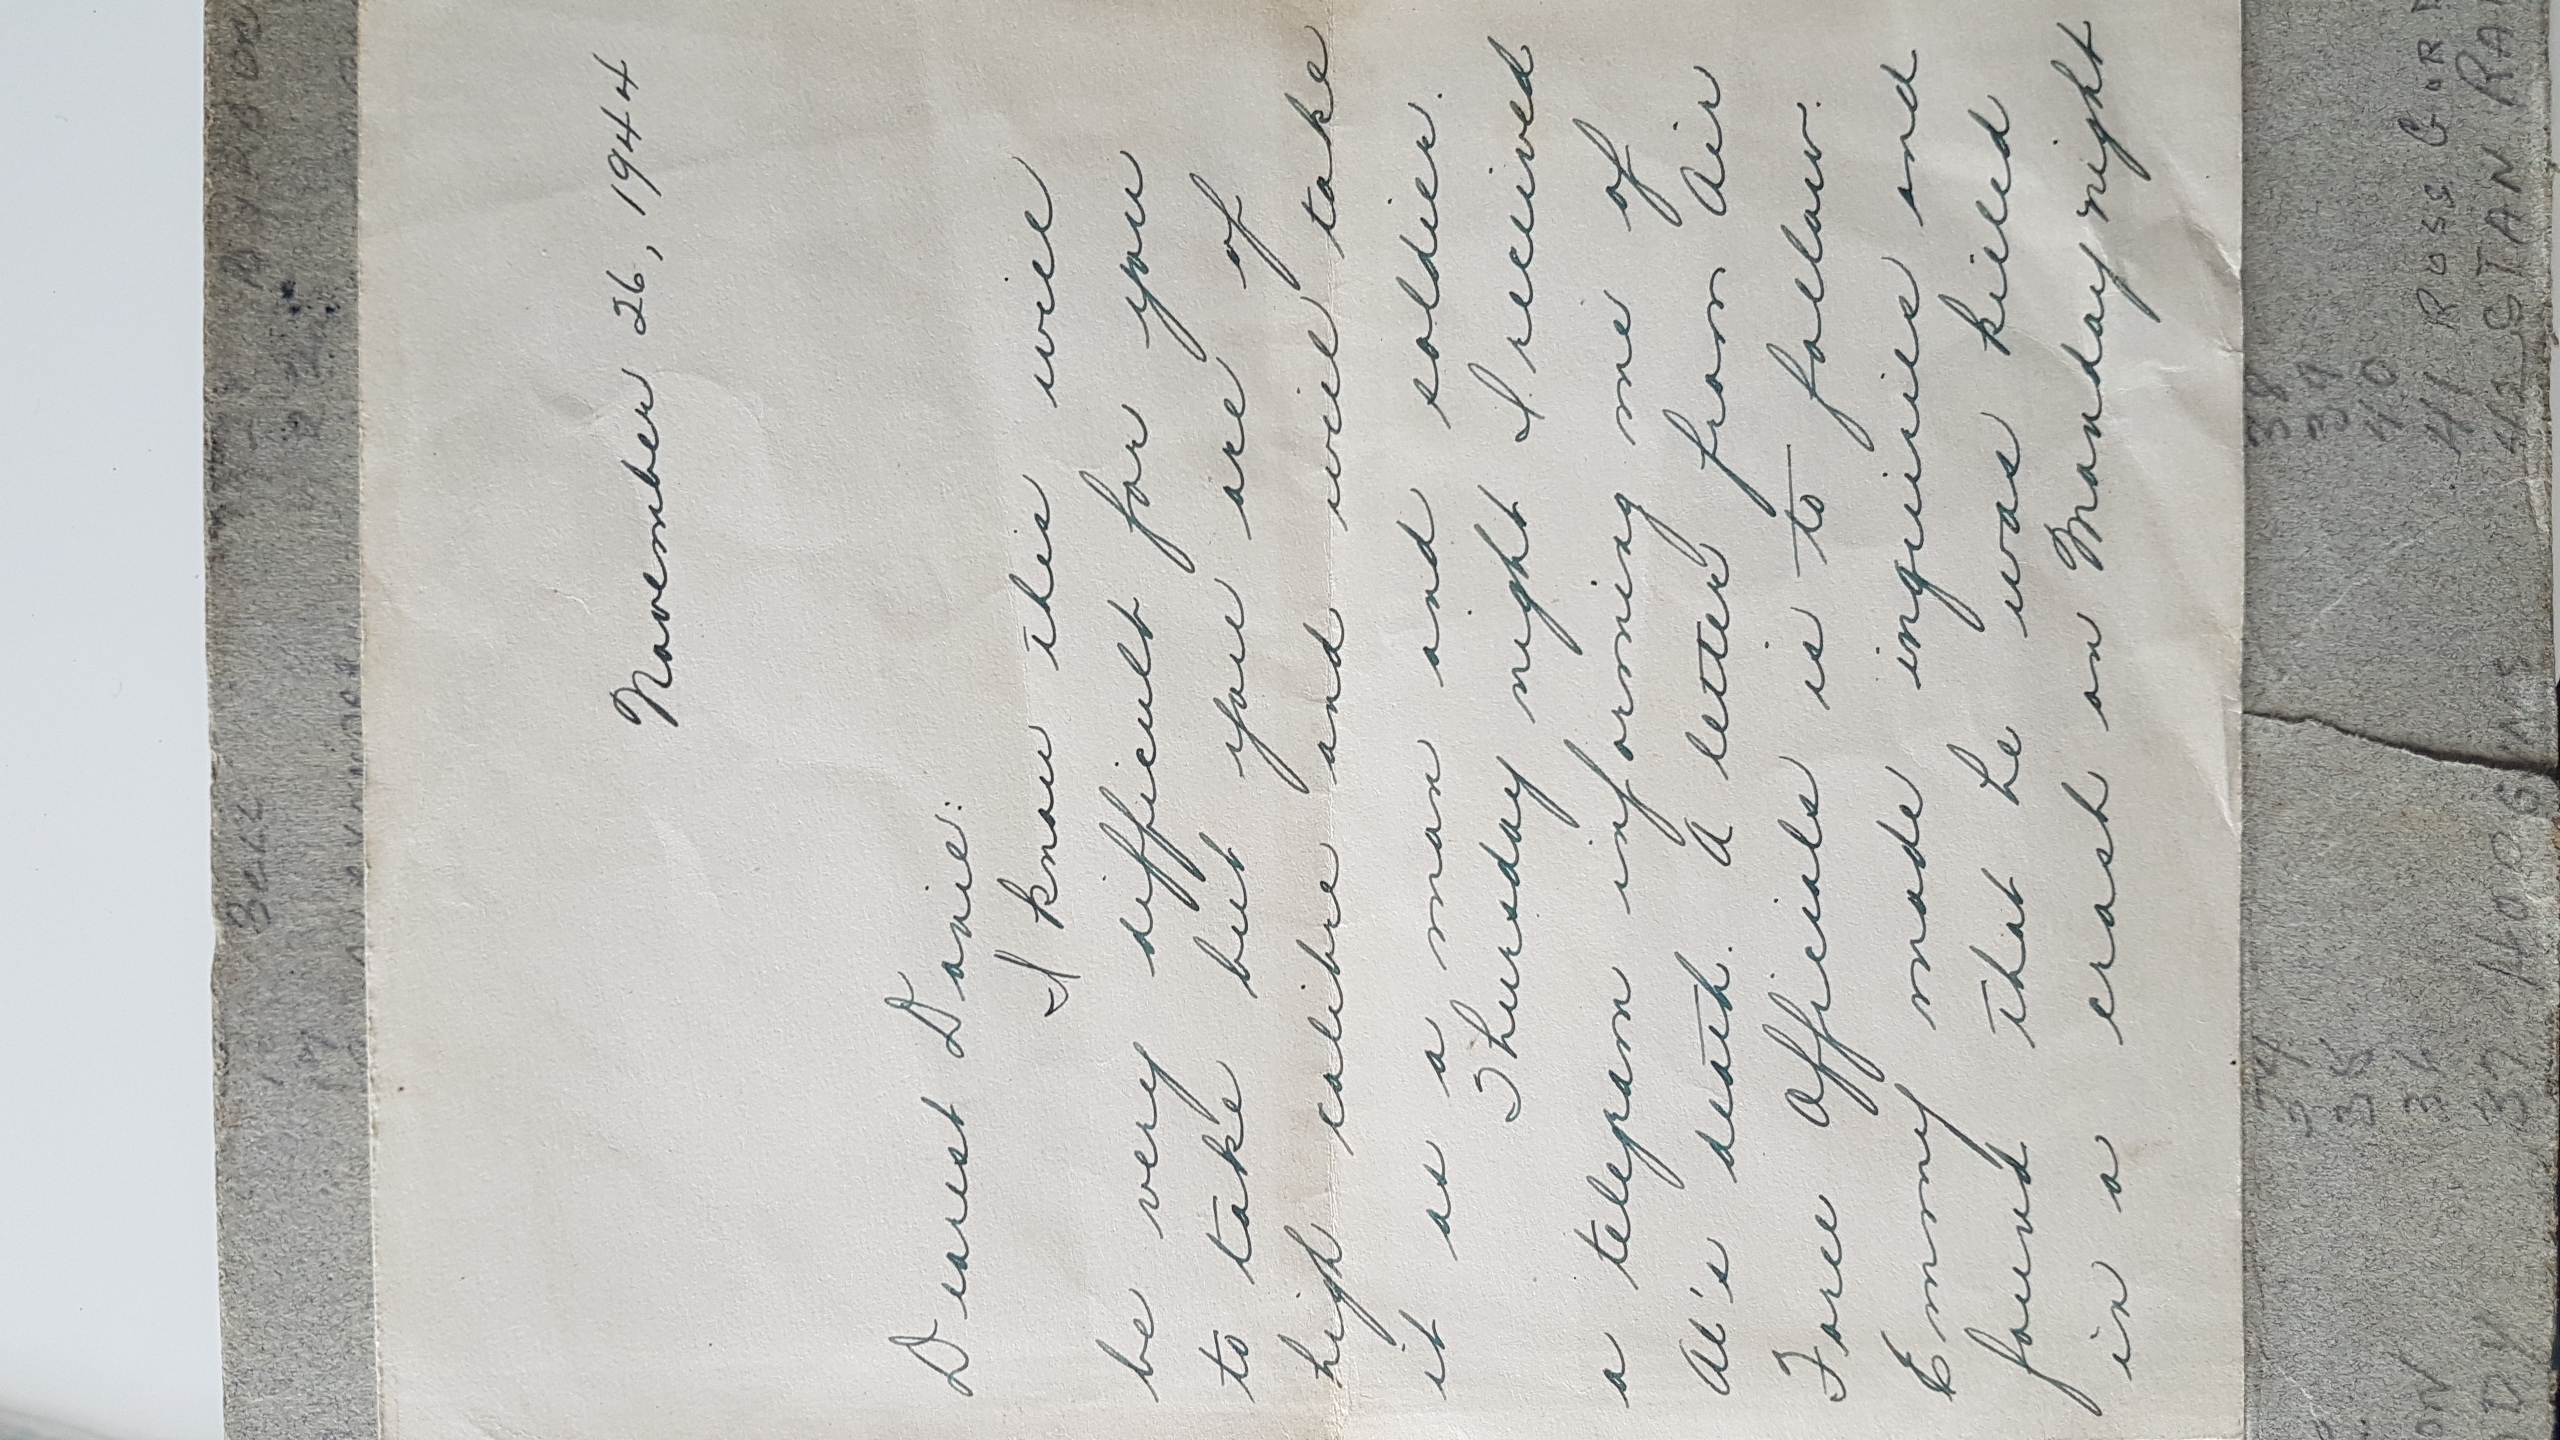 November 26, 1944
Dearest Davie:
I know this will
be very difficult for you
to take but you are of
high calibre and will take
it as a man and soldier.
Thursday night I received
a telegram informing me of
Al's death. A letter from Air
Force Officials is to follow.
Emmy made inquiries and
found that he was killed
in a crash on Monday night
BELL
34
35
36
37
38
39
40
41 ROSS GOR
42 STAN RA